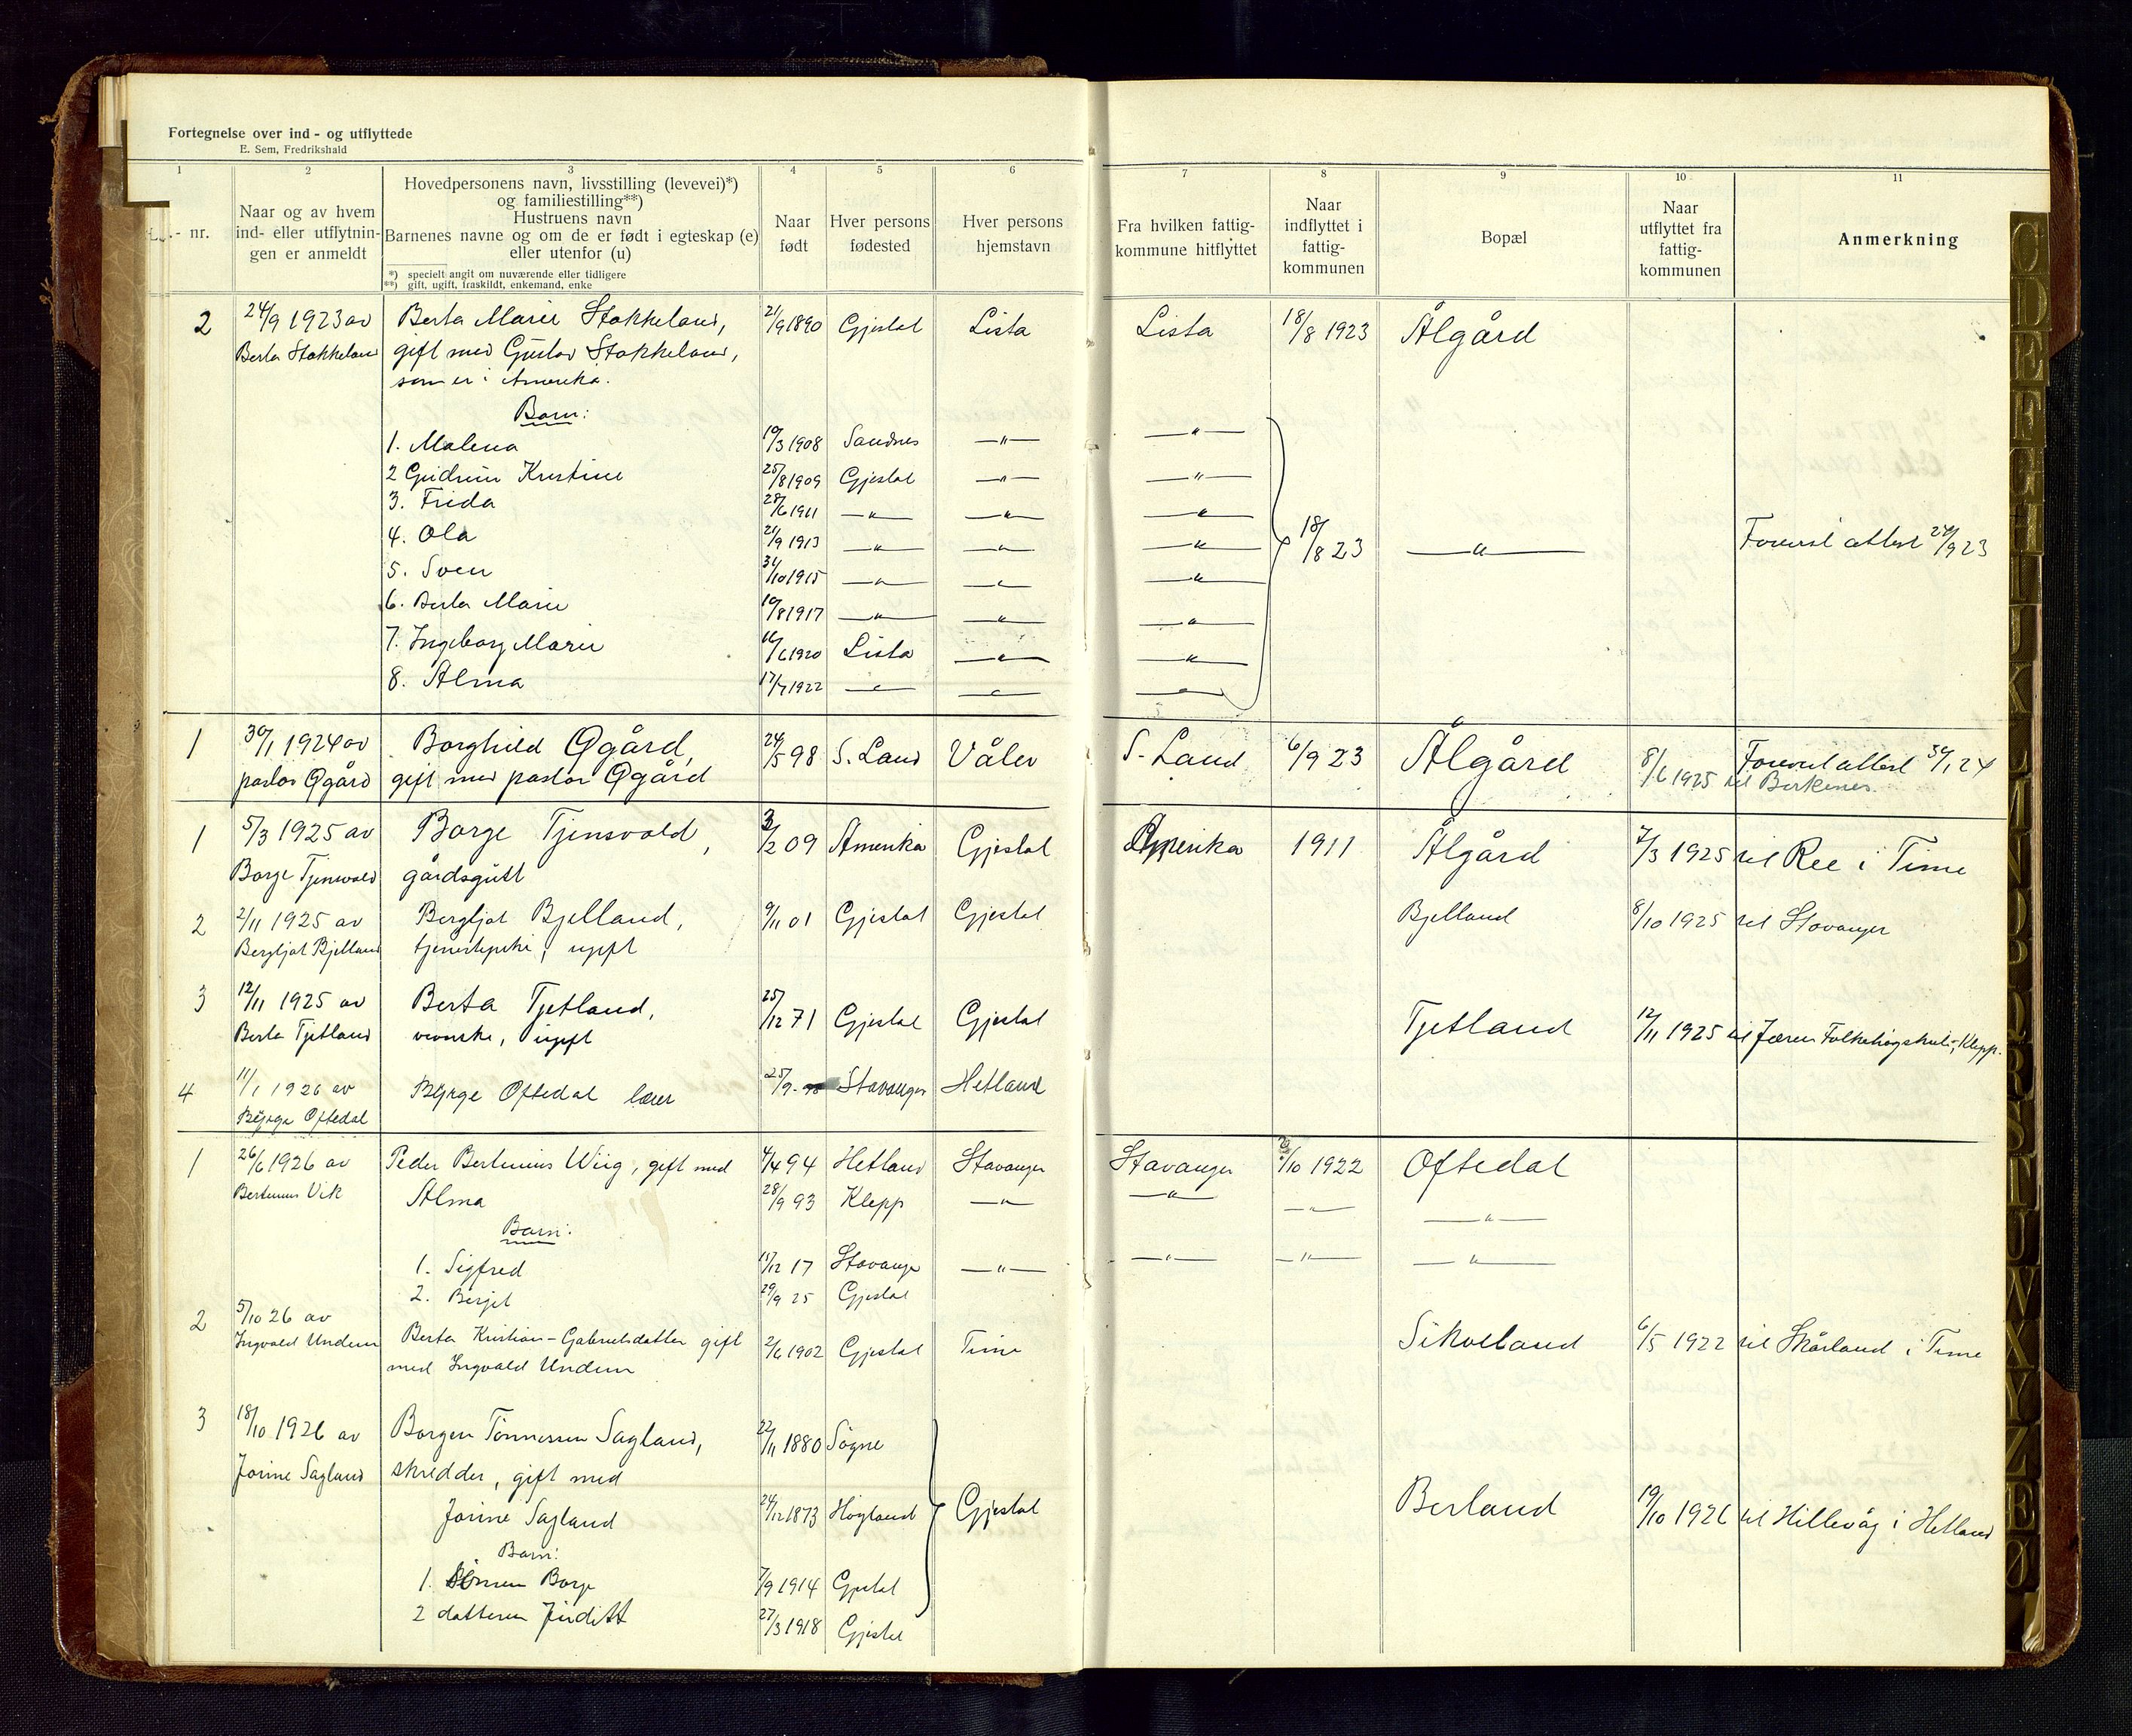 Fortegnelse over ind- og utflyttede
E. Sem, Fredrikshald
1 2 3 4 5 6 7 8 9 10 11
nr.
Naar og av hvem
ind- eller utflytnin-
gen er anmeldt
Hovedpersonens navn, livsstilling (levevei)*)
og familiestilling**)
Hustruens navn
Barnenes navne og om de er født i egteskap (e)
eller utenfor (u)
*) specielt angit om nuværende eller tidligere
**) gift, ugift, fraskildt, enkemand, enke
Naar
født
Hver persons
fødested
Hver persons
hjemstavn
Fra hvilken fattig-
kommune hitflyttet
Naar
indflyttet i
fattig-
kommunen
Bopæl
Naar
utflyttet fra
fattig-
kommunen
Anmerkning
2 24/9 1923 av Berta Marie Stokkeland, 21/9 1890 Gjestal Lista Lista 18/8 1923 Ålgård
Berta Stokkeland gift med Gustav Stokkeland,
som er i Amerika.
Barn:
1. Malena 19/3 1908 Sandnes —"— —"—
2 Gudrun Kristine 25/8 1909 Gjestal —"— —"—
3. Frida 28/6 1911 —"— —"— —"—
4. Ola 21/9 1913 —"— —"— —"— 18/8 23 —"— attest 24/9 23
5. Sven 31/10 1915 —"— —"— —"—
6. Berta Marie 19/8 1917 —"— —"— —"—
7. Ingeborg Marie 16/6 1920 Lista —"— —"—
8. Alma 17/7 1922 —"— —"— —"—
1 30/1 1924 av Borghild Øgård, 24/5 98 S. Land Våler S. Land 6/9 23 Ålgård 8/6 1925 attest 30/1 24
pastor Øgård gift med pastor Øgård til Birkenes.
1 5/3 1925 av Borge Tjensvold, 3/2 09 Amerika Gjestal Amerika 1911 Ålgård 7/3 1925 til Ree i Time
Borge Tjensvold gårdsgutt
2 2/11 1925 av Bergljot Bjelland, 9/11 01 Gjestal Gjestal Bjelland 8/10 1925 til Stavanger
Bergljot Bjelland tjenestepike, ugift
3 12/11 1925 av Berta Tjetland, 25/12 71 Gjestal Gjestal Tjetland 12/11 1925 til Jæren Folkehøgskule, Klepp.
Berta Tjetland ugift
4 11/1 1926 av Byrge Oftedal lærer 25/9 Stavanger Hetland
Byrge Oftedal
1 26/6 1926 av Peder Bertinius Wiig, gift med 4/4 94 Hetland Stavanger Stavanger /10 1922 Oftedal
Bertinius Vik Alma 28/9 93 Klepp —"— —"— —"— —"—
Barn:
1. Sigfred 15/12 17 Stavanger —"— —"— —"— —"—
2. Berjit 29/9 25 Gjestal
2 5/10 26 av
Ingvald Undem Berta Kristian-Gabrielsdatter gift 2/6 1902 Gjestal Time Sikvelland 6/5 1922 til Skårland i Time
med Ingvald Undem
3 18/10 1926 av Borgen Tønnessen Sagland, 22/11 1880 Søgne
Jorine Sagland skredder, gift med
Jorine Sagland 24/12 1873 Høgland Gjestal Berland 19/10 1926 til Hillevåg i Hetland
Barn:
1. sønnen Borge 7/9 1914 Gjestal
2 datteren Juditt 27/3 1918 Gjestal
C D E F G H I J K L M N O P Q R S T U W X Y Z Æ Ø